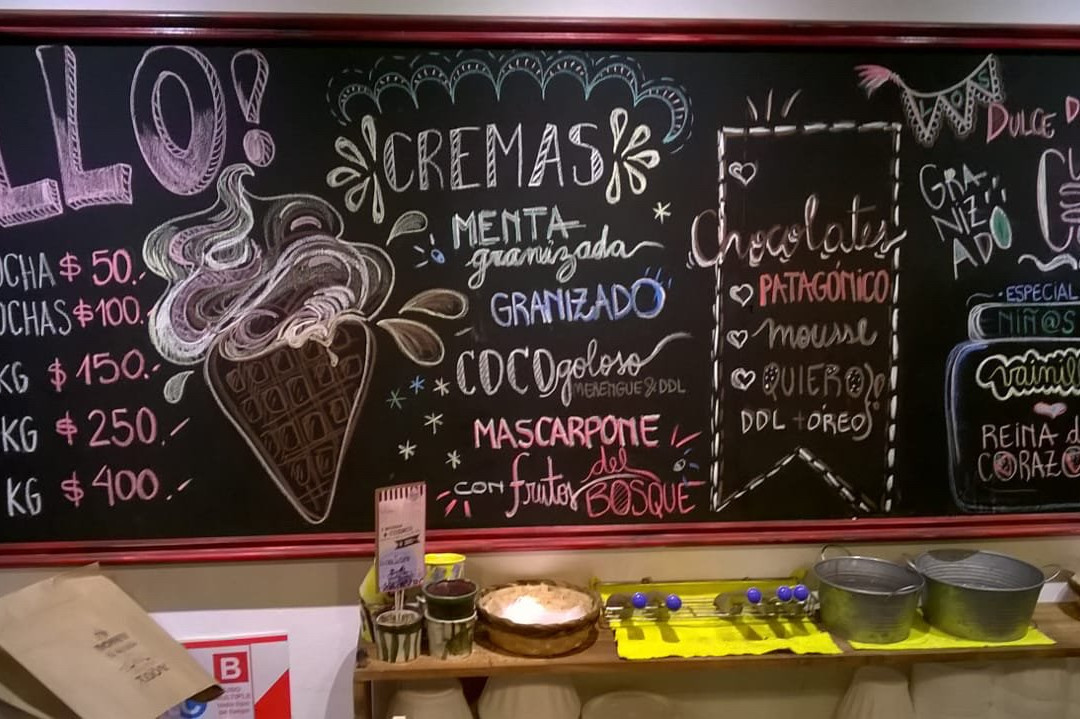 LLO!
UCHA $ 50.-
OCHAS $100.-
KG $ 150.-
KG $ 250.-
KG $ 400.-
CREMAS
MENTA
granizada
GRANIZADO
COCO goloso
MERENGUE & DDL
MASCARPONE
CON frutos del
BOSQUE
Chocolates
PATAGÓNICO
mousse
QUIERO!
DDL + ÓREO)
DULCE D
GRA
NIZ
ADO
ESPECIAL
NIÑ@S
vainil
REINA d
CORAZO
B